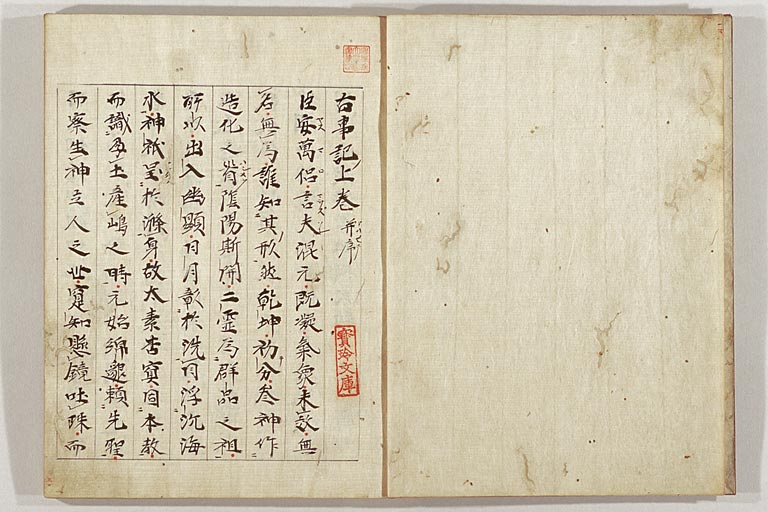 古事記上卷 并序
臣安萬侶言夫混元既凝氣象未效無
名無爲誰知其形然乾坤初分叄神作
造化之首陰陽斯開二靈爲群品之祖
所以出入幽顯日月彰於洗目浮沉海
水神祇呈於滌身故太素杳冥因本教
而識孕土産嶋之時元始綿邈賴先聖
而察生神立人之世寔知懸鏡吐珠而
寶玲文庫